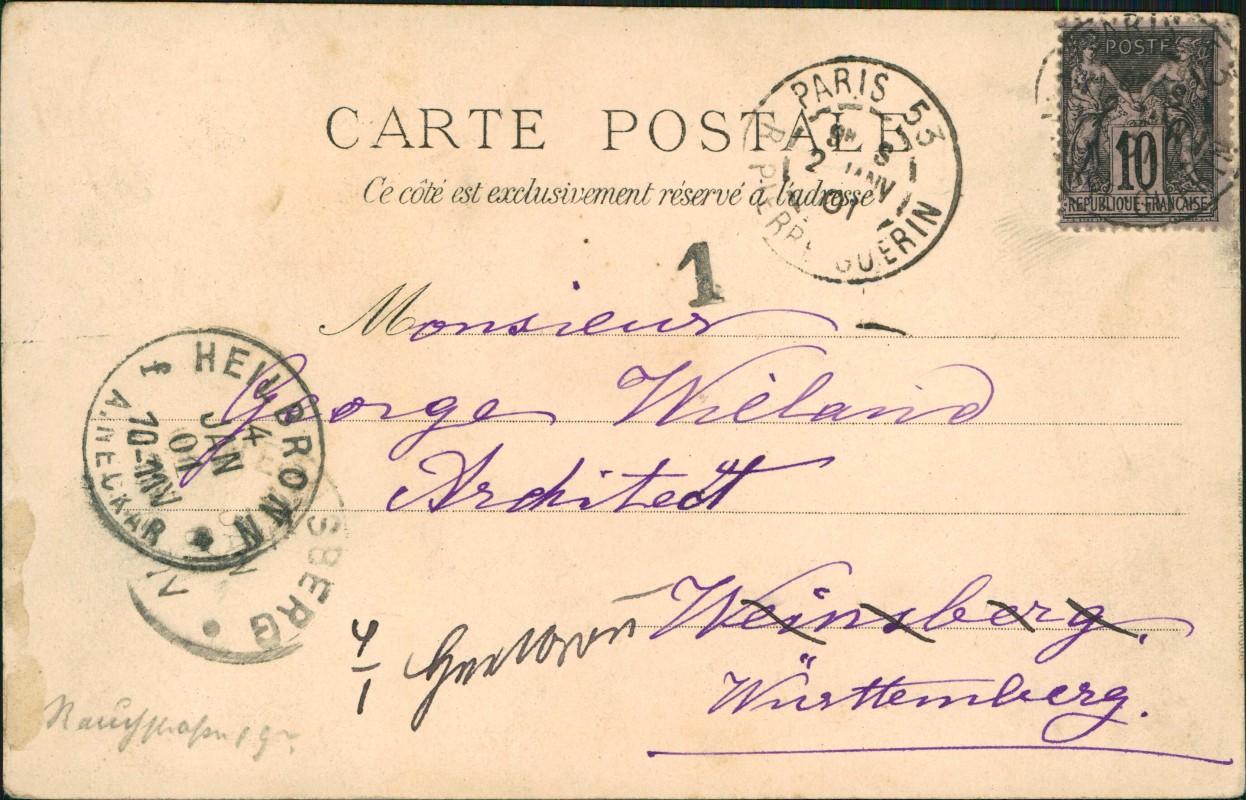 CARTE POSTALE
Ce côté est exclusivement réservé à l'adresse
PARIS 53
2 JANV 01
R. PIERRE GUERIN
POSTE
10
REPUBLIQUE FRANÇAISE
1
Monsieur
George Wieland
Architect
Weinsberg.
Württemberg.
HEILBRONN
4 JAN 01
10-11V
A. NECKAR
SBERG
4/1 Heilbronn